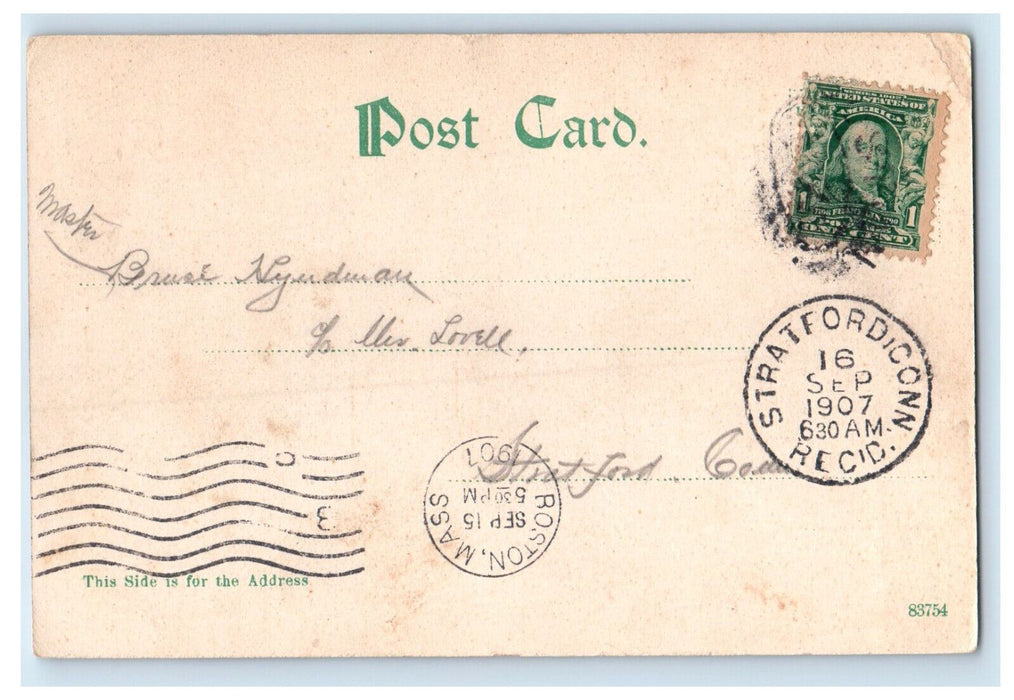 Post Card.
SERIES 1902
UNITED STATES OF
AMERICA
1 1
FRANKLIN
ONE CENT
Master
Bruce Hyndman
c/o Mrs. Lovell.
Stratford Conn
STRATFORD, CONN
16
SEP
1907
6 30 AM.
REC'D.
BOSTON, MASS
SEP 15
5 30 PM
1907
C
3
This Side is for the Address
83754